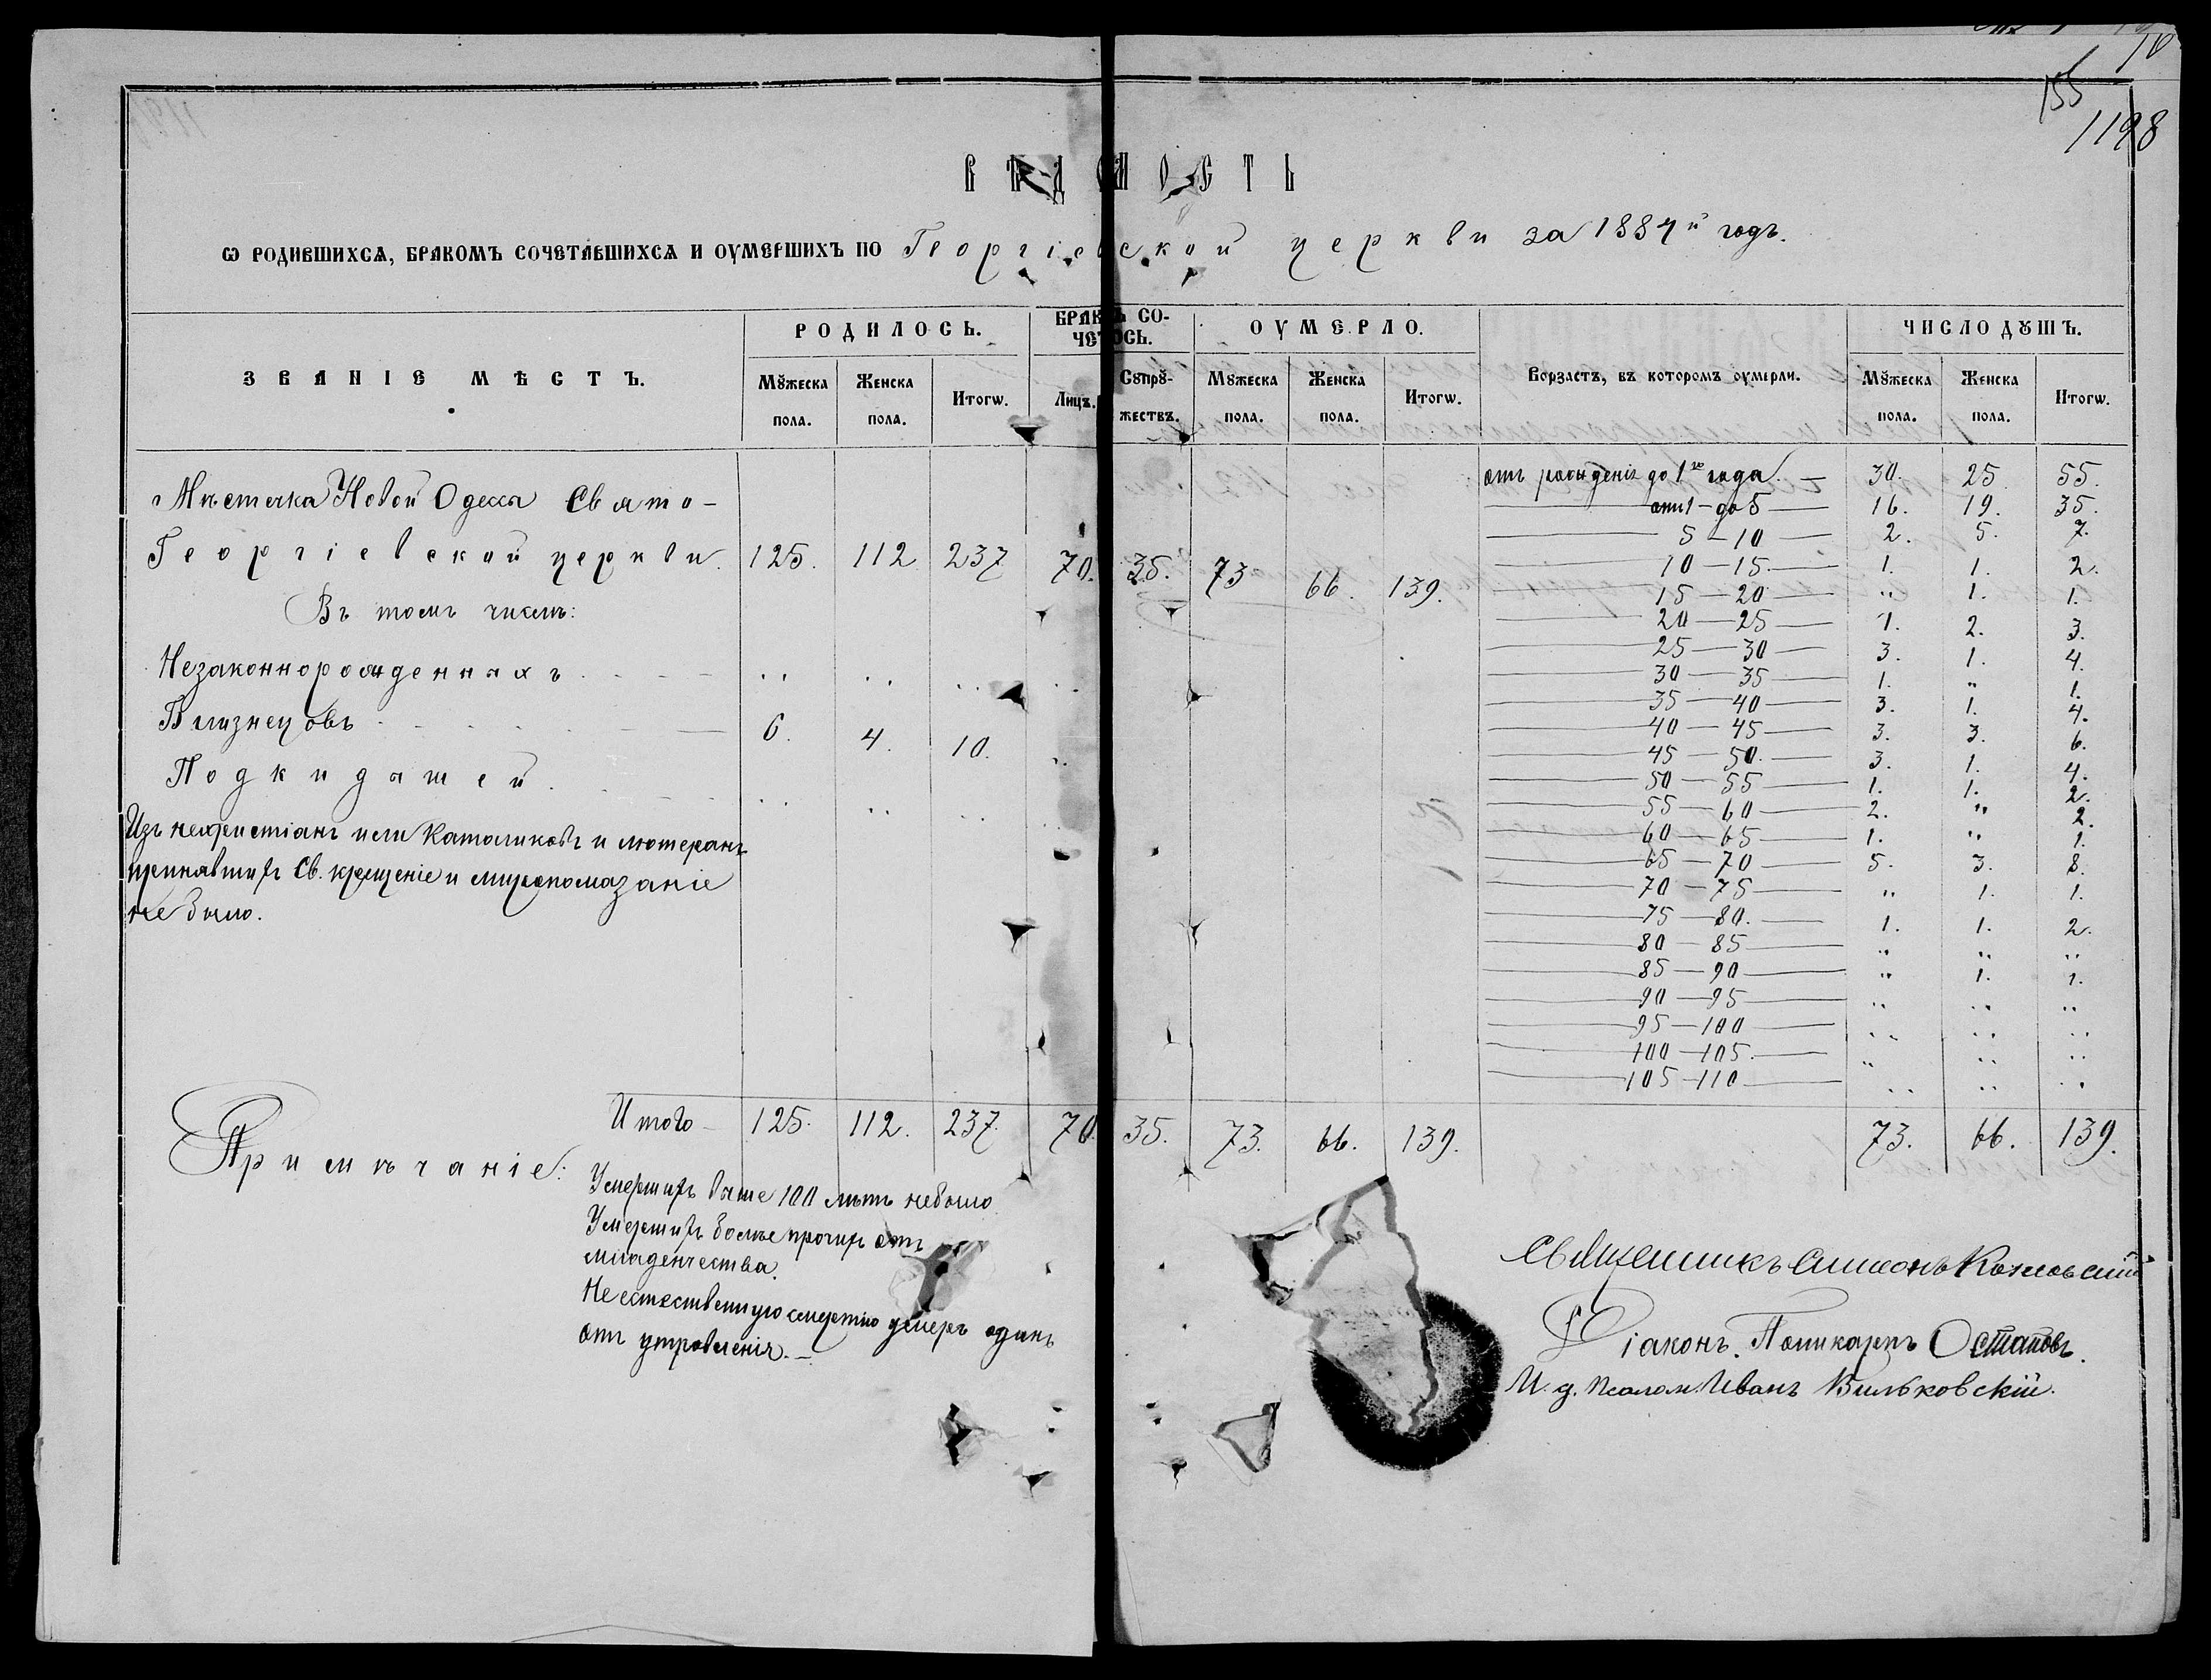 10
155
1198
ВѢДОМОСТЬ
Ѡ РОДИВШИХСѦ, БРАКОМЪ СОЧЕТАВШИХСѦ И ОУМЕРШИХЪ ПО Георгіевской церкви за 1884й годъ.
ЗВАНІЕ МѢСТЪ.
РОДИЛОСЬ.
Мꙋжеска пола.
Женска пола.
Итогѡ.
БРАКОМЪ СО-
ЧЕТОСЬ.
Лицъ.
Сꙋпрꙋ-
жествъ.
ОУМЕРЛО.
Мꙋжеска пола.
Женска пола.
Итогѡ.
Ворзастъ, въ которомъ оумерли.
ЧИСЛО ДꙊШЪ.
Мꙋжеска пола.
Женска пола.
Итогѡ.
Мѣстечка Новой Одессы Свято-
Георгіевской церкви. 125. 112 237 70. 35. 73 66. 139.
Въ томъ числѣ:
Незаконнорожденныхъ . . . „ „ „ „
Близнецовъ . . . 6. 4. 10. „
Подкидышей . . . „ „ „ „
Изъ нехристіанъ или Католиковъ и лютеранъ
принявшихъ Св. крещеніе и миропомазаніе
не было.
отъ рожденія до 1го года. — 30. 25. 55.
отъ 1 — до 5 — 16. 19. 35.
5 — 10 — 2. 5. 7.
10 — 15. — 1. 1. 2.
15 — 20 — „ 1. 1.
20 — 25 — 1. 2. 3.
25 — 30 — 3. 1. 4.
30 — 35 — 1. „ 1.
35 — 40 — 3. 1. 4.
40 — 45 — 3. 3. 6.
45 — 50. — 3. 1. 4.
50 — 55 — 1. 1. 2.
55 — 60 — 2. „ 2.
60 — 65 — 1. „ 1.
65 — 70 — 5. 3. 8.
70 — 75 — „ 1. 1.
75 — 80. — 1. 1. 2.
80 — 85 — „ „ „
85 — 90 — „ 1. 1.
90 — 95 — „ „ „
95 — 100 — „ „ „
100 — 105. — „ „ „
105 — 110 — „ „ „
Итого — 125. 112. 237. 70. 35. 73. 66. 139. 73. 66. 139.
Примѣчаніе:
Умершихъ выше 100 лѣтъ небыло
Умершихъ болѣе прочихъ отъ
младенчества.
Неестественную смертію умеръ одинъ
отъ утровленія. —
Священникъ Симеонъ Козловскій
Діаконъ. Поликарпъ Остаповъ.
И. д. Псалом. Иванъ Вильковскій.